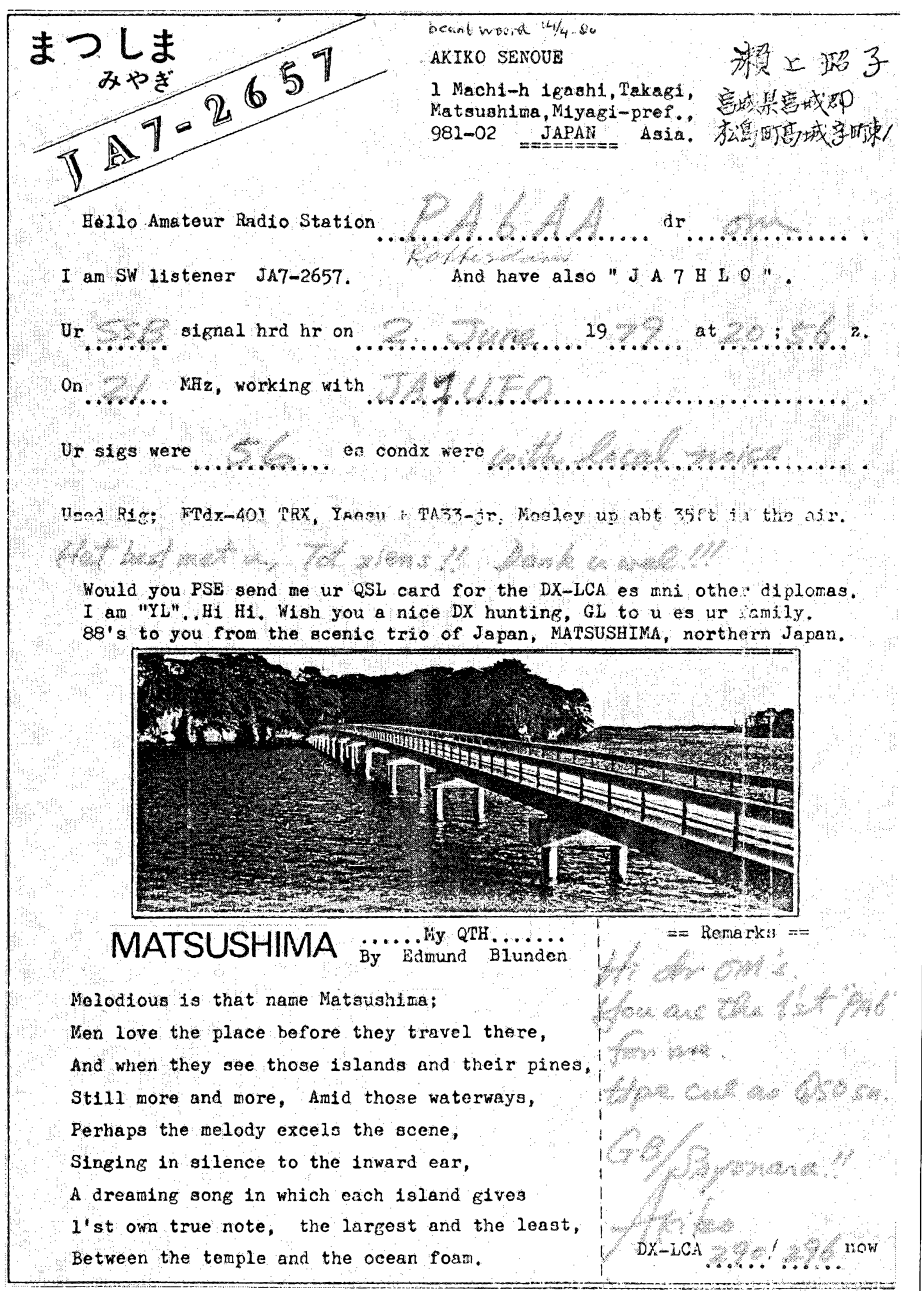 まつしま
みやぎ
JA7-2657
beantwoord 14/4-80
AKIKO SENOUE
1 Machi-h igashi,Takagi,
Matsushima,Miyagi-pref.,
981-02 JAPAN Asia.
瀬上昭子
宮城県宮城郡
松島町高城字町東1
Hello Amateur Radio Station PA6AA dr om
Rotterdam
I am SW listener JA7-2657. And have also " J A 7 H L O ".
Ur SSB signal hrd hr on 2. June 1979 at 20:56 z.
On 21 MHz, working with JA7UFO
Ur sigs were 56 es condx were with local noice
Used Rig; FTdx-401 TRX, Yaesu + TA33-jr. Mosley up abt 35ft in the air.
Tot ziens!! Dank u wel!!!
Would you PSE send me ur QSL card for the DX-LCA es mni other diplomas.
I am "YL"..Hi Hi. Wish you a nice DX hunting, GL to u es ur family.
88's to you from the scenic trio of Japan, MATSUSHIMA, northern Japan.
MATSUSHIMA ......My QTH.......
By Edmund Blunden
Melodious is that name Matsushima;
Men love the place before they travel there,
And when they see those islands and their pines,
Still more and more, Amid those waterways,
Perhaps the melody excels the scene,
Singing in silence to the inward ear,
A dreaming song in which each island gives
1'st own true note, the largest and the least,
Between the temple and the ocean foam.
== Remarks ==
Hi dr OM's.
You are the 1'st "PA6"
for me.
Hpe cul as QSO sn.
GB/Sayonara!!
Akiko
DX-LCA 290/296 now